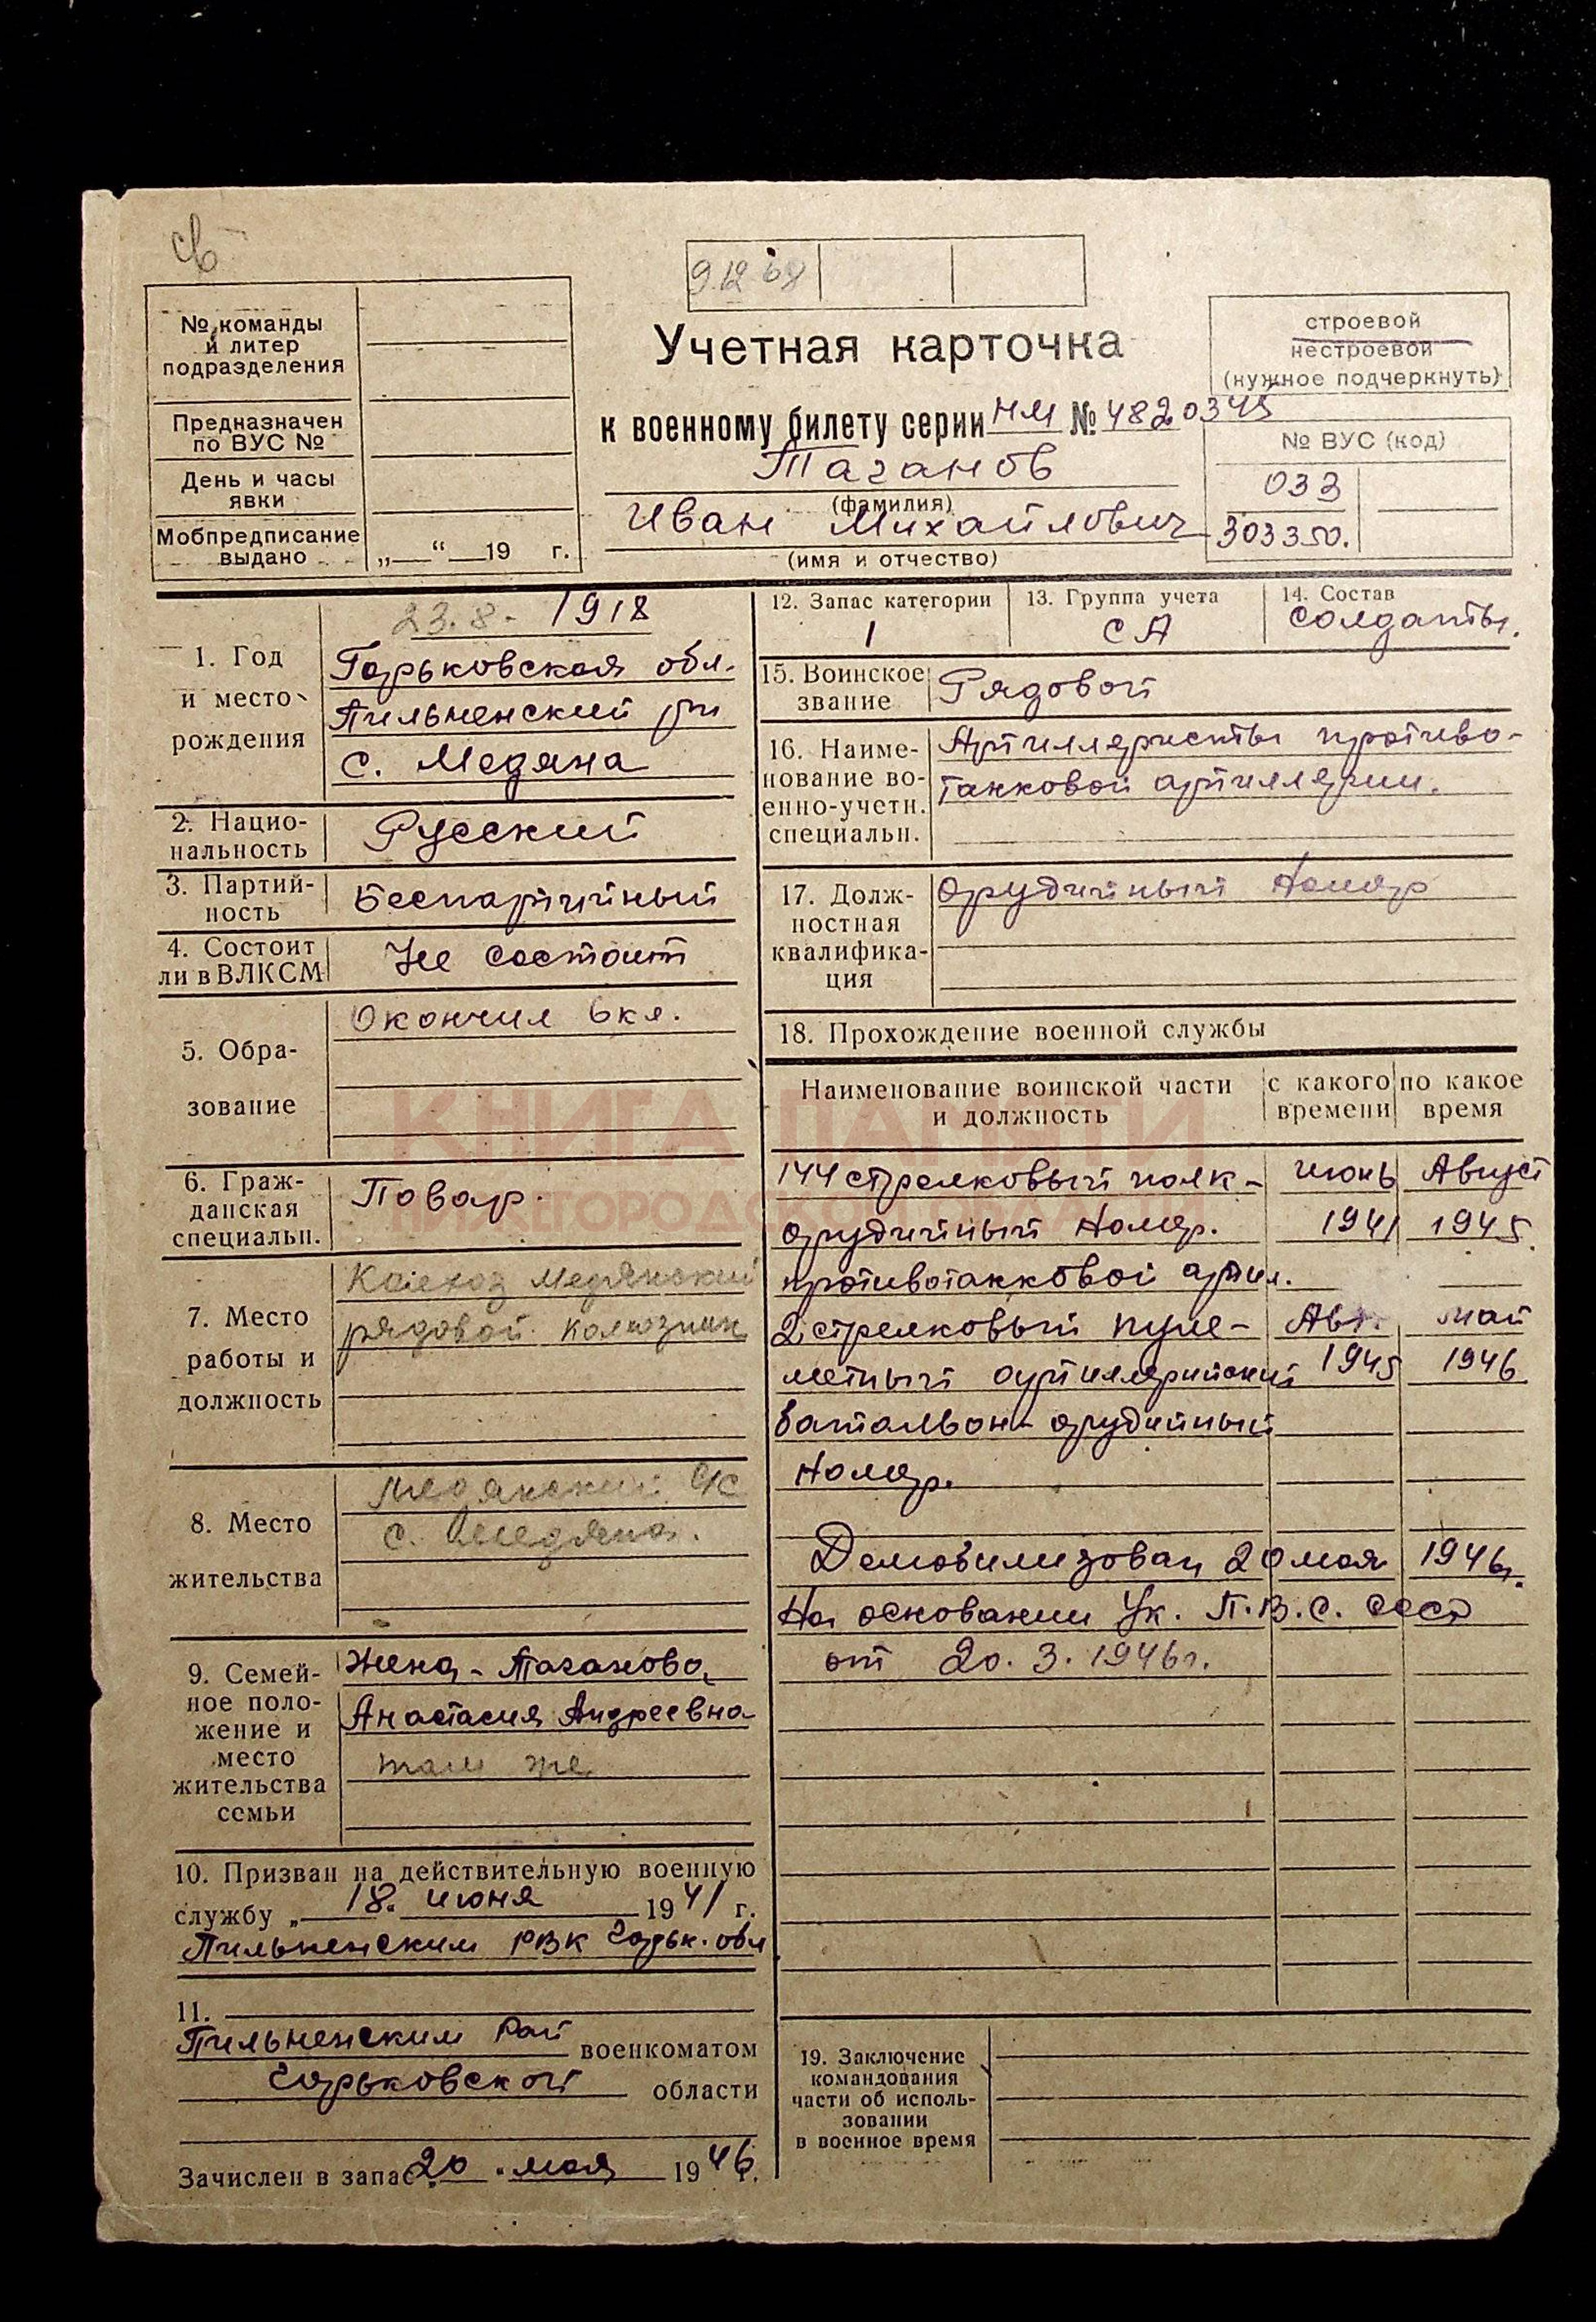 св
9.12 68
№ команды
и литер
подразделения
Предназначен
по ВУС №
День и часы
явки
Мобпредписание
выдано
„ “ 19 г.
Учетная карточка
к военному билету серии НМ № 4820345
Таганов
(фамилия)
Иван Михайлович
(имя и отчество)
строевой
нестроевой
(нужное подчеркнуть)
№ ВУС (код)
033
303350.
1. Год
и место
рождения
23.8. 1918
Горьковская обл.
Пильненский рн
с. Медяна
2. Нацио-
нальность
Русский
3. Партий-
ность
Беспартийный
4. Состоит
ли в ВЛКСМ
Не состоит
5. Обра-
зование
Окончил 6 кл.
6. Граж-
данская
специальн.
Повар.
7. Место
работы и
должность
Колхоз Медянский
рядовой колхозник
8. Место
жительства
Медянский с/с
с. Медяна.
9. Семей-
ное поло-
жение и
место
жительства
семьи
Жена - Таганова
Анастасия Андреевна
там же
10. Призван на действительную военную
службу „ 18. июня 1941 г.
Пильненским РВК Горьк. обл.
11.
Пильненским Рай военкоматом
Горьковской области
Зачислен в запас 20 мая 1946 г.
12. Запас категории
1
13. Группа учета
СА
14. Состав
Солдаты.
15. Воинское
звание
Рядовой
16. Наиме-
нование во-
енно-учетн.
специальн.
Артиллеристы противо-
танковой артиллерии.
17. Долж-
ностная
квалифика-
ция
Орудийный Номер
18. Прохождение военной службы
Наименование воинской части
и должность
с какого
времени
по какое
время
144 стрелковый полк - июнь Август
орудийный Номер. 1941 1945.
противотанковой артил.
2 стрелковый пуле- Авг. май
метный артиллерийский 1945 1946
батальон - орудийный
Номер.
Демобилизован 20 мая 1946г.
На основании Ук. П.В.С. СССР
от 20.3.1946г.
19. Заключение
командования
части об исполь-
зовании
в военное время
КНИГА ПАМЯТИ
НИЖЕГОРОДСКОЙ ОБЛАСТИ